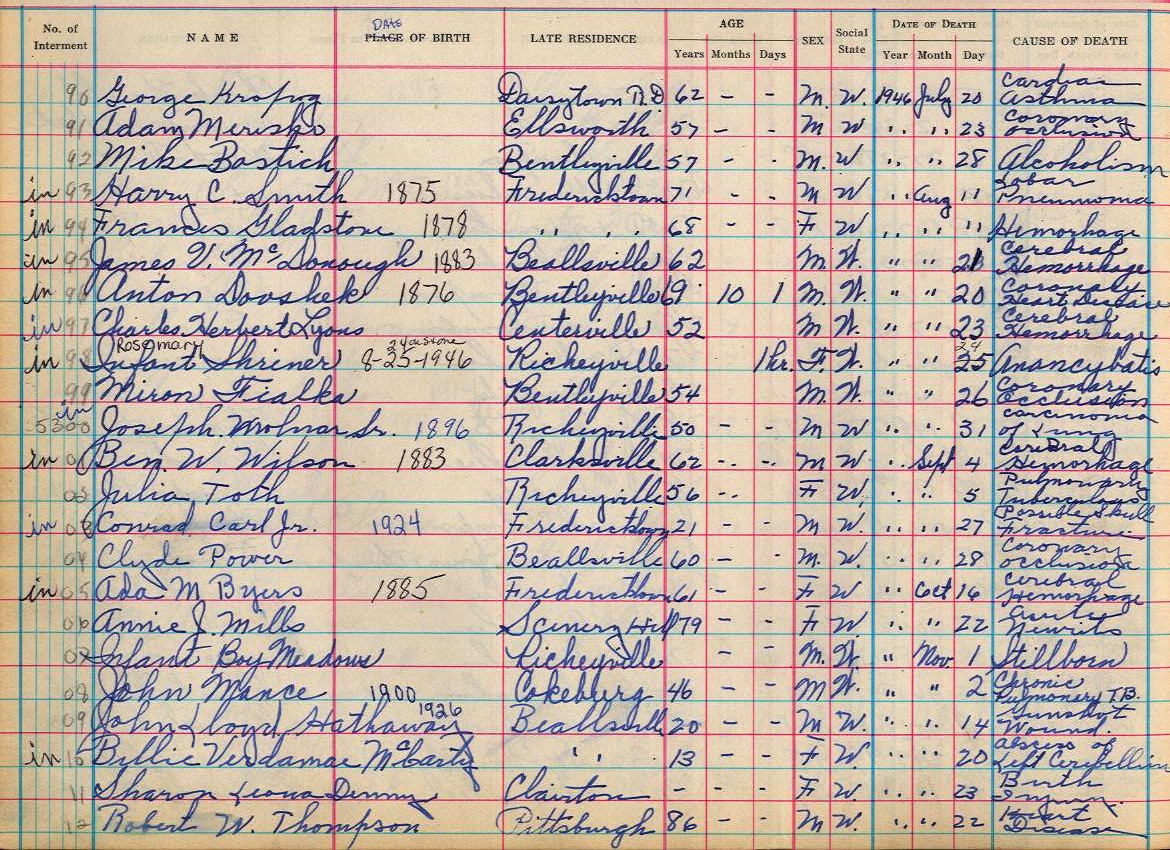 No. of Interment NAME DATE PLACE OF BIRTH LATE RESIDENCE AGE Years Months Days SEX Social State DATE OF DEATH Year Month Day CAUSE OF DEATH
90 George Kropog Daisytown R.D 62 - - M. W. 1946 July 20 Cardiac Asthma
91 Adam Merisko Ellsworth 57 - - M W " " 23 Coronary occlusion
92 Mike Bastich Bentleyville 57 - - M. W " " 28 Alcoholism
in 93 Harry C. Smith 1875 Fredericktown 71 - - M W " Aug 11 Lobar Pneumonia
in 94 Frances Gladstone 1878 " " 68 - - F W " " 11 Hemorhage
in 95 James V. McDonough 1883 Beallsville 62 M. W. " " 21 Cerebral Hemorrhage
in 96 Anton Dooshek 1876 Bentleyville 69 10 1 M. W. " " 20 Coronary Heart Disease
in 97 Charles Herbert Lyons Centerville 52 M W. " " 23 Cerebral Hemorrhage
in 98 Rosemary Infant Shriner 8-25-1946 Richeyville 1 hr. F. W. " " 25
99 Miron Fialka Bentleyville 54 M. W. " " 26 Coronary Occlusion
in 5300 Joseph Molnar Sr. 1896 Richeyville 50 - - M W " " 31 Carcinoma of Lung
in 01 Ben. W. Wilson 1883 Clarksville 62 - - M W. " Sept 4 Cerebral Hemorhage
02 Julia Toth Richeyville 56 - - F W. " " 5 Pulmonary Tuberculosis
in 03 Conrad Carl Jr. 1924 Fredericktown 21 - - M W. " " 27 Possible Skull Fracture
04 Clyde Power Beallsville 60 - - M. W. " " 28 Coronary occlusion
in 05 Ada M Byers 1885 Fredericktown 61 - - F W " Oct 16 Cerebral Hemorhage
06 Annie J. Mills Scenery Hill 79 - - F W. " " 22 Neurits
07 Infant Boy Meadows Richeyville - - M. W. " Nov 1 Stillborn
08 John Mance 1900 Cokeburg 46 - - M W. " " 2 Chronic Pulmonary T.B.
09 John Lloyd Hathaway 1926 Beallsville 20 - - M W. " " 14 Gunshot Wound.
in 10 Billie Verdamae McCarty " " 13 - - F W. " " 20 Abscess of Left Cerebellum
11 Sharon Leona Denny Clairton - - - F W. " " 23 Birth Injury.
12 Robert W. Thompson Pittsburgh 86 - - M W. " " 22 Heart Disease